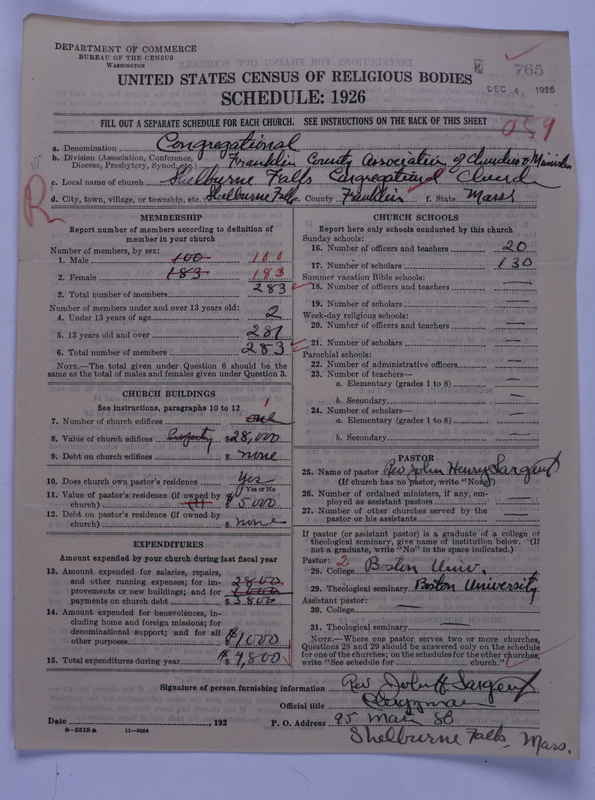 DEPARTMENT OF COMMERCE
BUREAU OF THE CENSUS
WASHINGTON
765
UNITED STATES CENSUS OF RELIGIOUS BODIES
DEC 4 1926
SCHEDULE: 1926
FILL OUT A SEPARATE SCHEDULE FOR EACH CHURCH. SEE INSTRUCTIONS ON THE BACK OF THIS SHEET
059
a. Denomination Congregational
b. Division (Association, Conference, Diocese, Presbytery, Synod, etc.) Franklin County Association of Churches & Ministers
c. Local name of church Shelburne Falls Congregational Church
R
d. City, town, village, or township, etc. Shelburne Falls e. County Franklin f. State Mass
MEMBERSHIP
Report number of members according to definition of
member in your church
Number of members, by sex:
1. Male 100 100
2. Female 183 183
3. Total number of members 283
Number of members under and over 13 years old:
4. Under 13 years of age 2
5. 13 years old and over 281
6. Total number of members 283
NOTE.—The total given under Question 6 should be the
same as the total of males and females given under Question 3.
CHURCH BUILDINGS
See instructions, paragraphs 10 to 12
7. Number of church edifices one 1
8. Value of church edifices Property $28,000
9. Debt on church edifices $ none
10. Does church own pastor's residence? Yes
Yes or No
11. Value of pastor's residence (if owned by
church) (1) $5000
12. Debt on pastor's residence (if owned by
church) $ none
EXPENDITURES
Amount expended by your church during last fiscal year
13. Amount expended for salaries, repairs,
and other running expenses; for im- 2800
provements or new buildings; and for
payments on church debt $3800
14. Amount expended for benevolences, in-
cluding home and foreign missions; for
denominational support; and for all
other purposes $1000
15. Total expenditures during year $4,800
CHURCH SCHOOLS
Report here only schools conducted by this church
Sunday schools:
16. Number of officers and teachers 20
17. Number of scholars 130
Summer vacation Bible schools:
18. Number of officers and teachers —
19. Number of scholars —
Week-day religious schools:
20. Number of officers and teachers —
21. Number of scholars —
Parochial schools:
22. Number of administrative officers —
23. Number of teachers—
a. Elementary (grades 1 to 8) —
b. Secondary —
24. Number of scholars—
a. Elementary (grades 1 to 8) —
b. Secondary —
PASTOR
25. Name of pastor Rev John Henry Sargent
(If church has no pastor, write "None")
26. Number of ordained ministers, if any, em-
ployed as assistant pastors —
27. Number of other churches served by the
pastor or his assistants —
If pastor (or assistant pastor) is a graduate of a college or
theological seminary, give name of institution below. (If
not a graduate, write "No" in the space indicated.)
Pastor: 2
28. College Boston Univ.
29. Theological seminary Boston University
Assistant pastor:
30. College —
31. Theological seminary —
NOTE.—Where one pastor serves two or more churches,
Questions 28 and 29 should be answered only on the schedule
for one of the churches; on the schedules for the other churches,
write "See schedule for church."
Signature of person furnishing information Rev John H Sargent
Official title Clergyman
Date , 192 P. O. Address 95 Main St
Shelburne Falls, Mass.
8-5518 a 11-9564